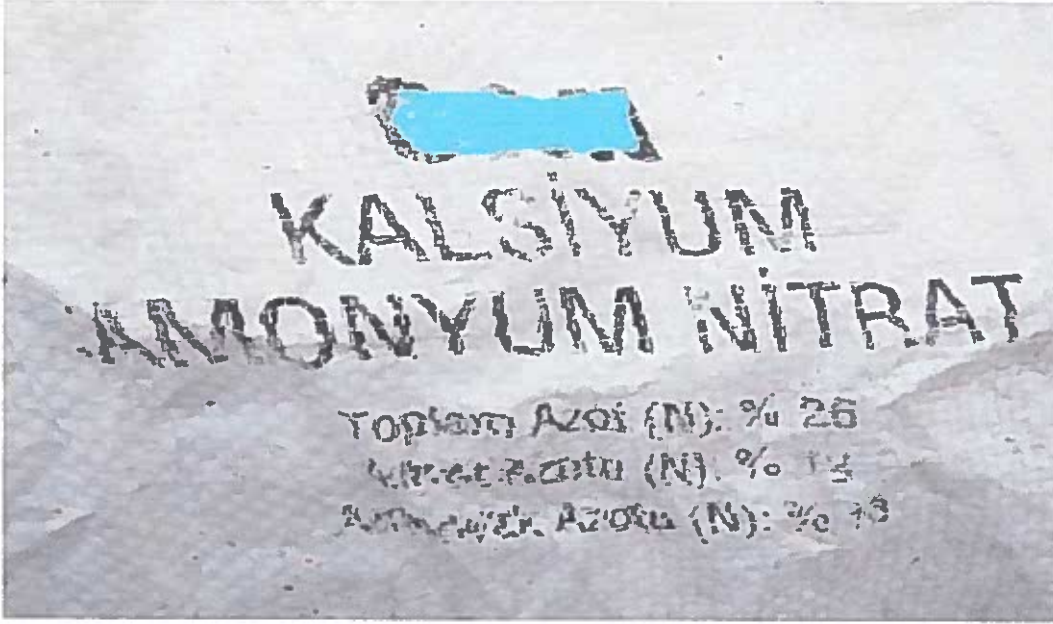 KALSİYUM
AMONYUM NİTRAT
Toplam Azot (N): % 26
Nitrat Azotu (N): % 13
Amonyak Azotu (N): % 13